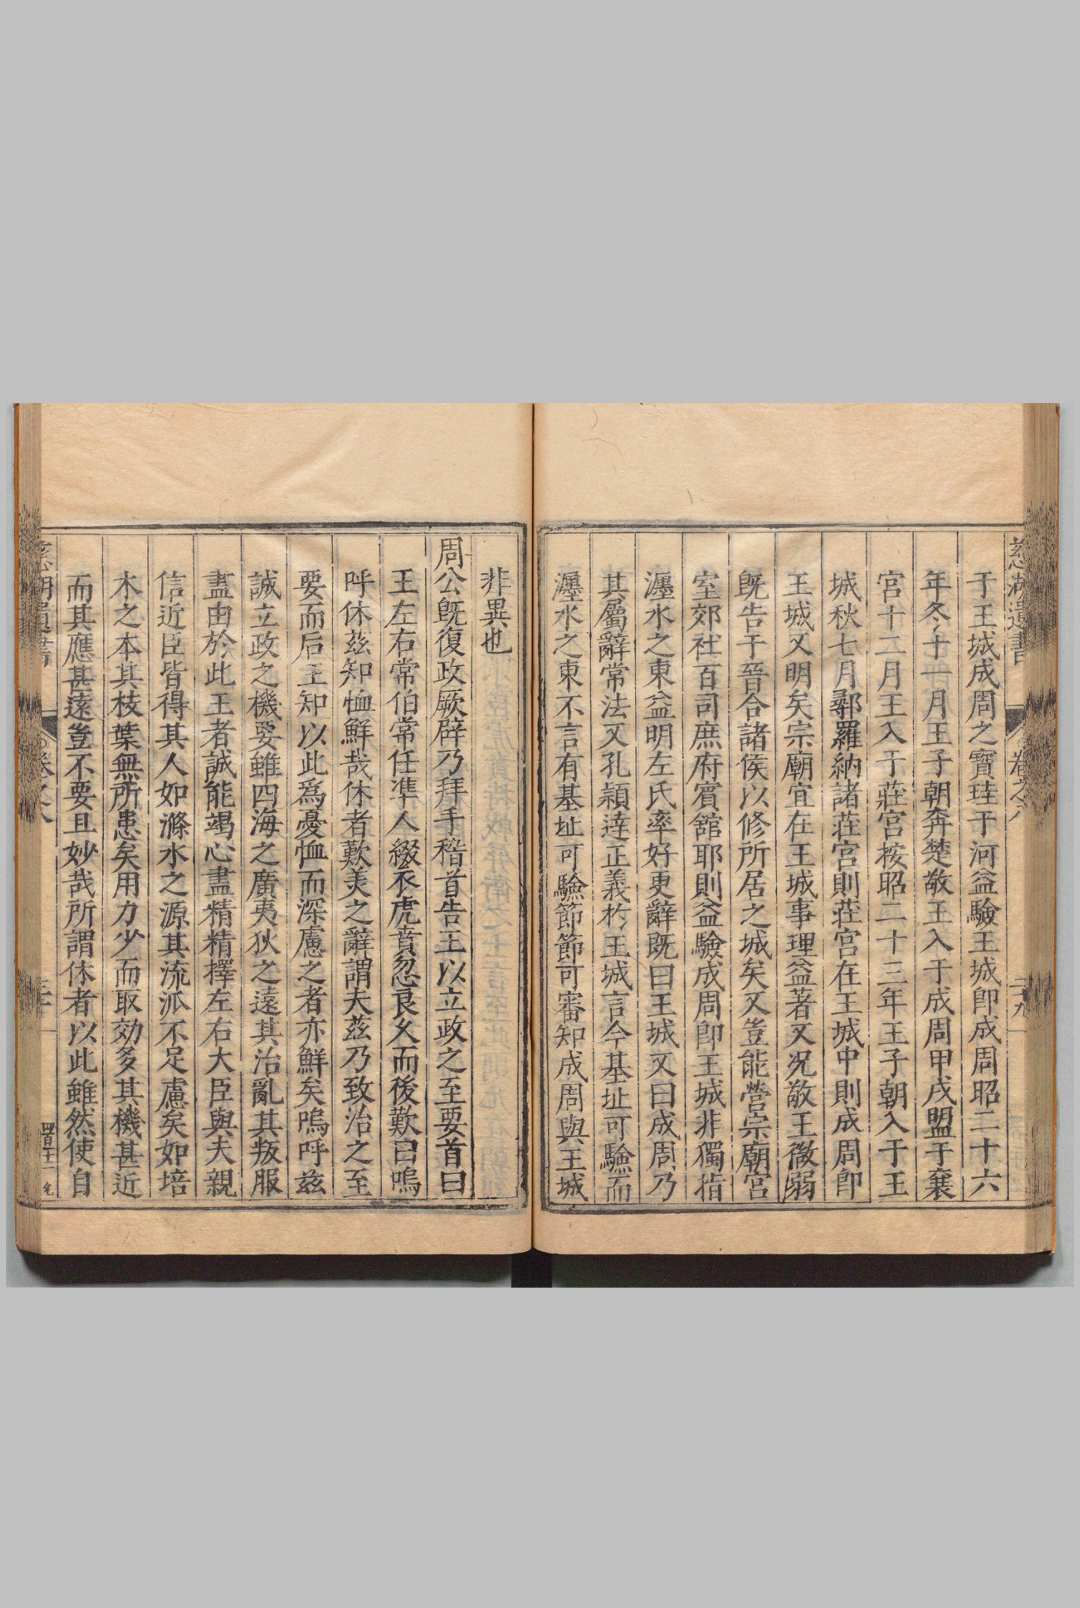 慈湖遺書
卷之八
二九
于王城成周之寶珪于河益驗王城卽成周昭二十六
年冬十一月王子朝奔楚敬王入于成周甲戌盟于襄
宮十二月王入于莊宮按昭二十三年王子朝入于王
城秋七月鄩羅納諸莊宮則莊宮在王城中則成周卽
王城又明矣宗廟宜在王城事理益著又况敬王微弱
旣告于晉合諸侯以修所居之城矣又豈能營宗廟宮
室郊社百司庶府賓舘耶則益驗成周卽王城非獨指
瀍水之東益明左氏率好更辭旣曰王城又曰成周乃
其屬辭常法又孔穎達正義於王城言今基址可驗而
瀍水之東不言有基址可驗節節可審知成周與王城
非異也
周公旣復政厥辟乃拜手稽首告王以立政之至要首曰
王左右常伯常任準人綴衣虎賁忽良久而後歎曰嗚
呼休兹知恤鮮哉休者歎美之辭謂夫兹乃致治之至
要而后王知以此爲憂恤而深慮之者亦鮮矣嗚呼兹
誠立政之機要雖四海之廣夷狄之遠其治亂其叛服
盡由於此王者誠能竭心盡精精擇左右大臣與夫親
信近臣皆得其人如滌水之源其流派不足慮矣如培
木之本其枝葉無所患矣用力少而取効多其機甚近
而其應甚遠豈不要且妙哉所謂休者以此雖然使自
慈湖遺書
卷之八
三十